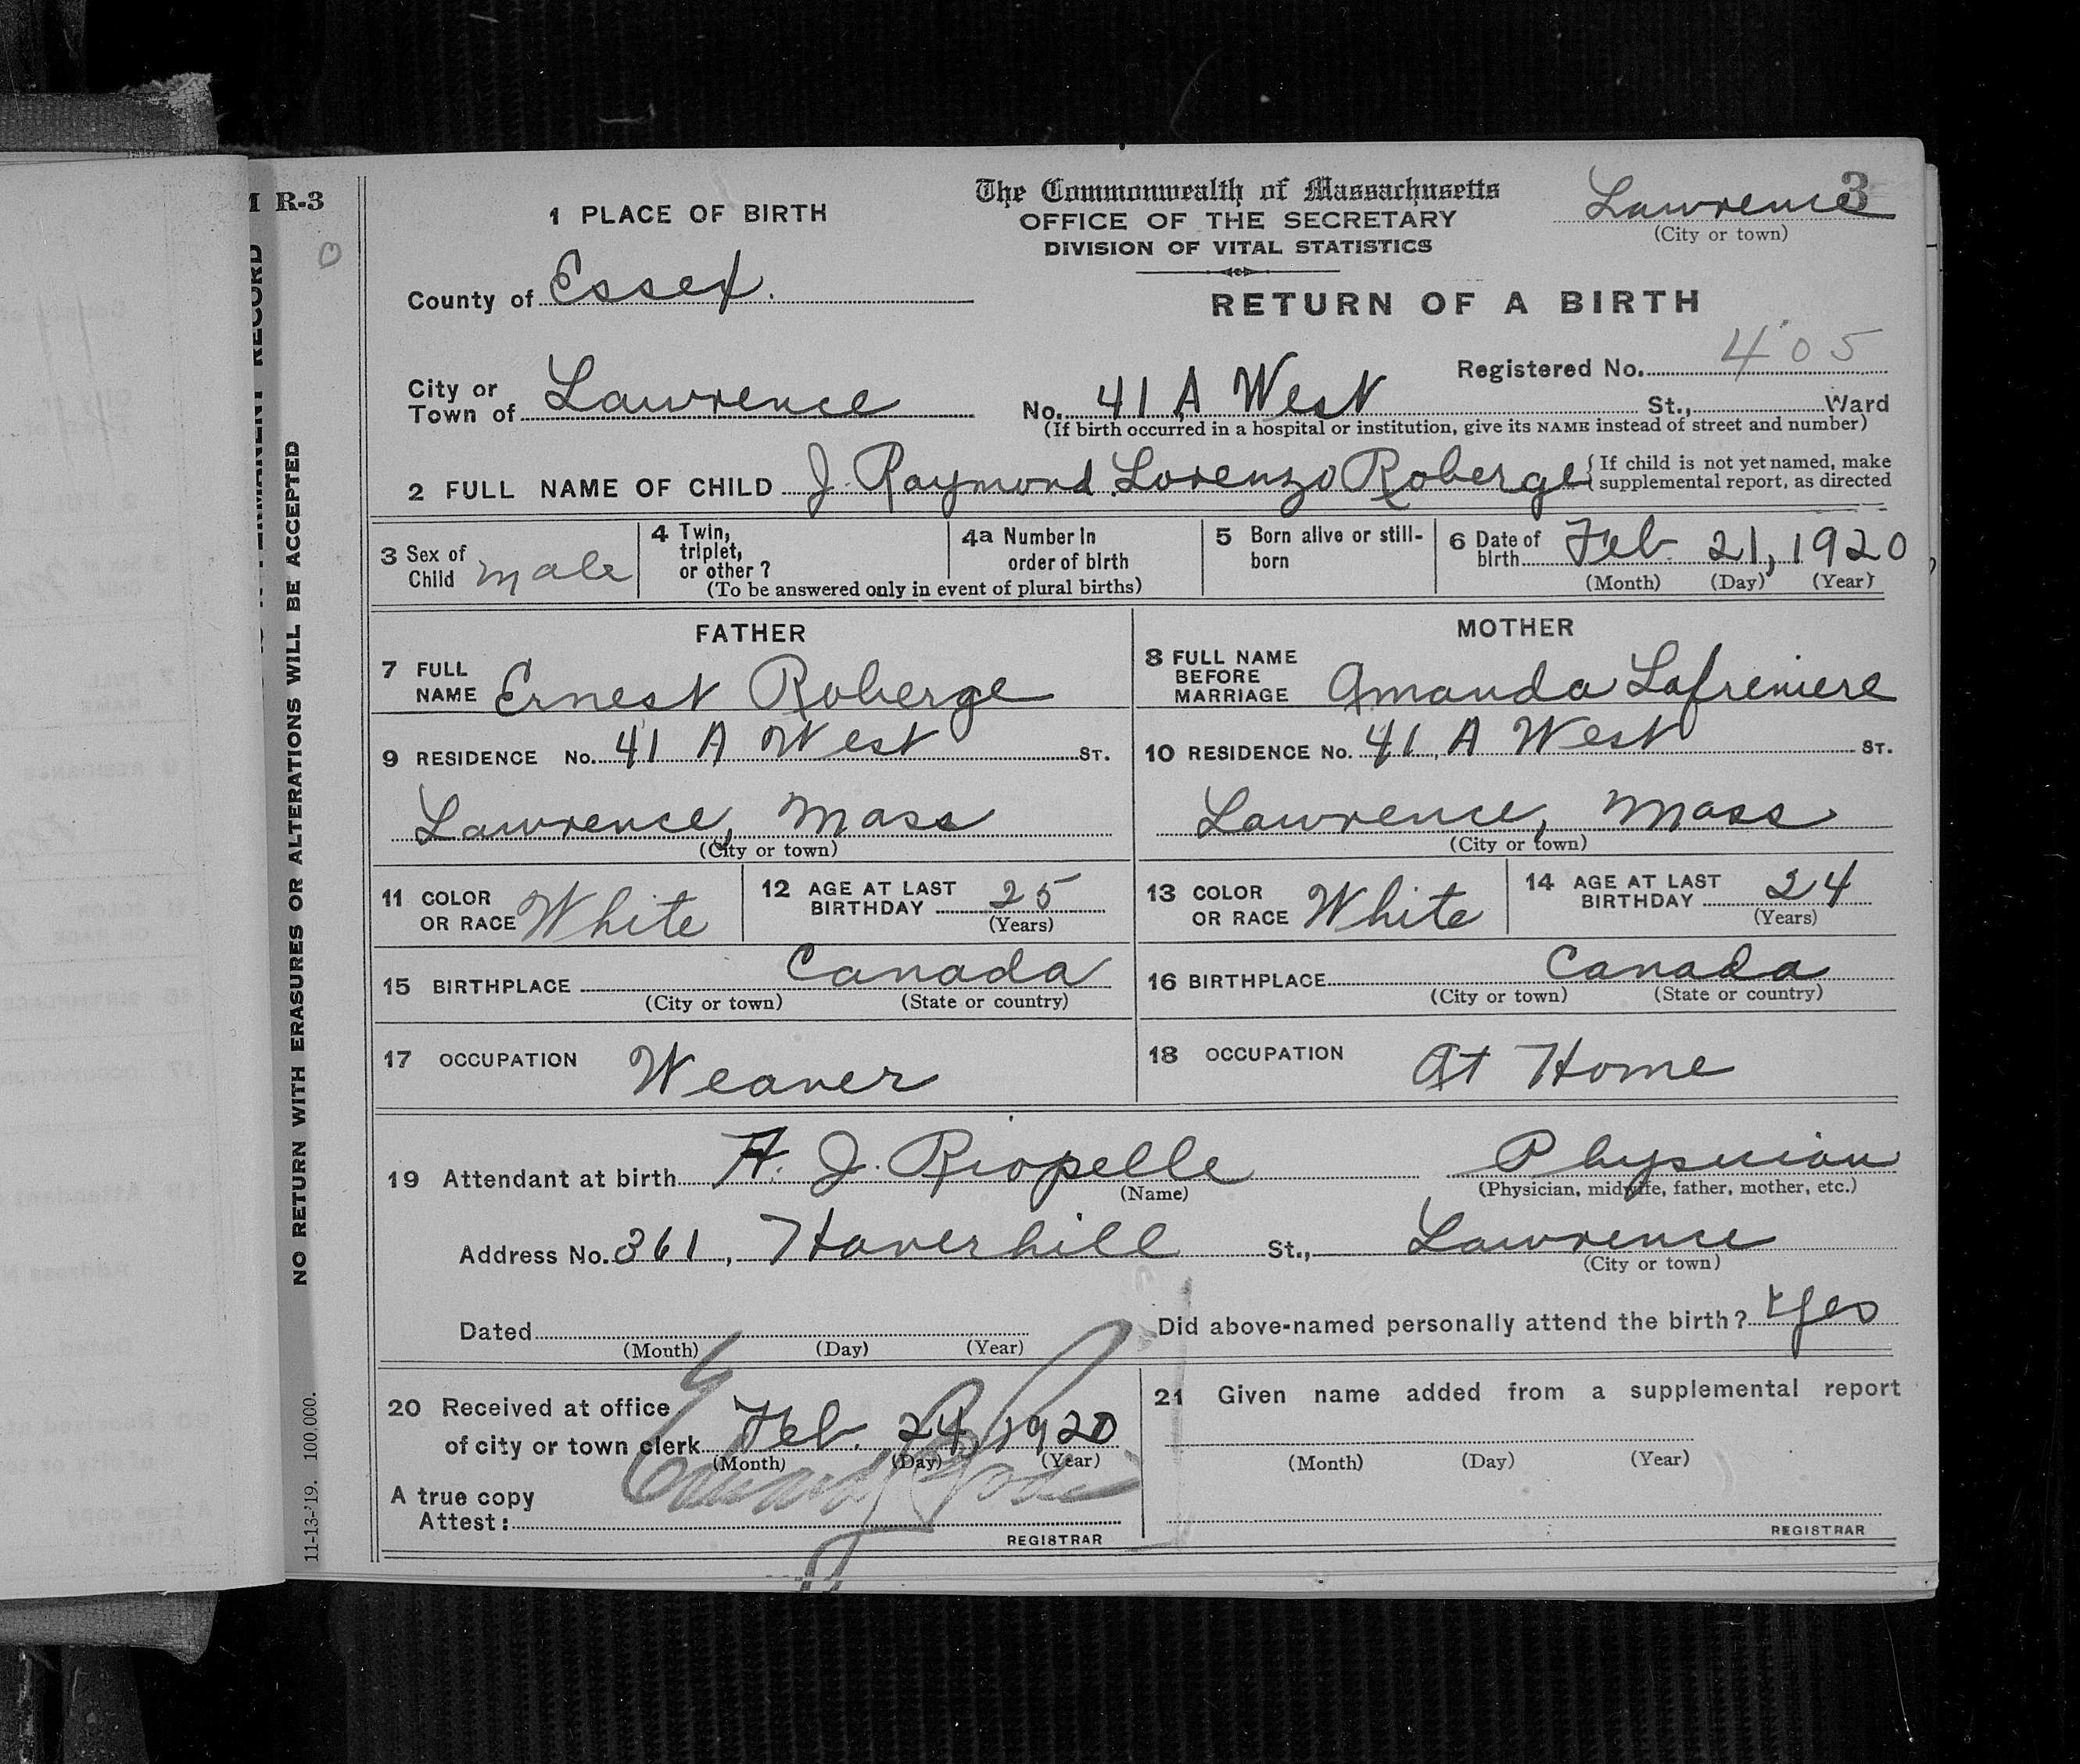 M R-3
PERMANENT RECORD
NO RETURN WITH ERASURES OR ALTERATIONS WILL BE ACCEPTED
11-13-'19. 100,000.
The Commonwealth of Massachusetts
OFFICE OF THE SECRETARY
DIVISION OF VITAL STATISTICS
Lawrence 3
(City or town)
1 PLACE OF BIRTH
County of Essex.
RETURN OF A BIRTH
Registered No. 405
City or
Town of Lawrence
No. 41 A West St., Ward
(If birth occurred in a hospital or institution, give its NAME instead of street and number)
2 FULL NAME OF CHILD J. Raymond Lorenzo Roberge { If child is not yet named, make
supplemental report, as directed
3 Sex of
Child male
4 Twin,
triplet,
or other?
4a Number in
order of birth
(To be answered only in event of plural births)
5 Born alive or still-
born
6 Date of
birth Feb. 21, 1920
(Month) (Day) (Year)
FATHER
7 FULL
NAME Ernest Roberge
9 RESIDENCE No. 41 A West ST.
Lawrence, Mass
(City or town)
11 COLOR
OR RACE White
12 AGE AT LAST
BIRTHDAY 25
(Years)
15 BIRTHPLACE Canada
(City or town) (State or country)
17 OCCUPATION Weaver
MOTHER
8 FULL NAME
BEFORE
MARRIAGE Amanda Lafreniere
10 RESIDENCE No. 41 A West ST.
Lawrence, Mass
(City or town)
13 COLOR
OR RACE White
14 AGE AT LAST
BIRTHDAY 24
(Years)
16 BIRTHPLACE Canada
(City or town) (State or country)
18 OCCUPATION At Home
19 Attendant at birth A. J. Riopelle Physician
(Name) (Physician, midwife, father, mother, etc.)
Address No. 361, Haverhill St., Lawrence
(City or town)
Dated
(Month) (Day) (Year)
Did above-named personally attend the birth? Yes
20 Received at office
of city or town clerk Feb. 24, 1920
(Month) (Day) (Year)
A true copy
Attest:
REGISTRAR
21 Given name added from a supplemental report
(Month) (Day) (Year)
REGISTRAR